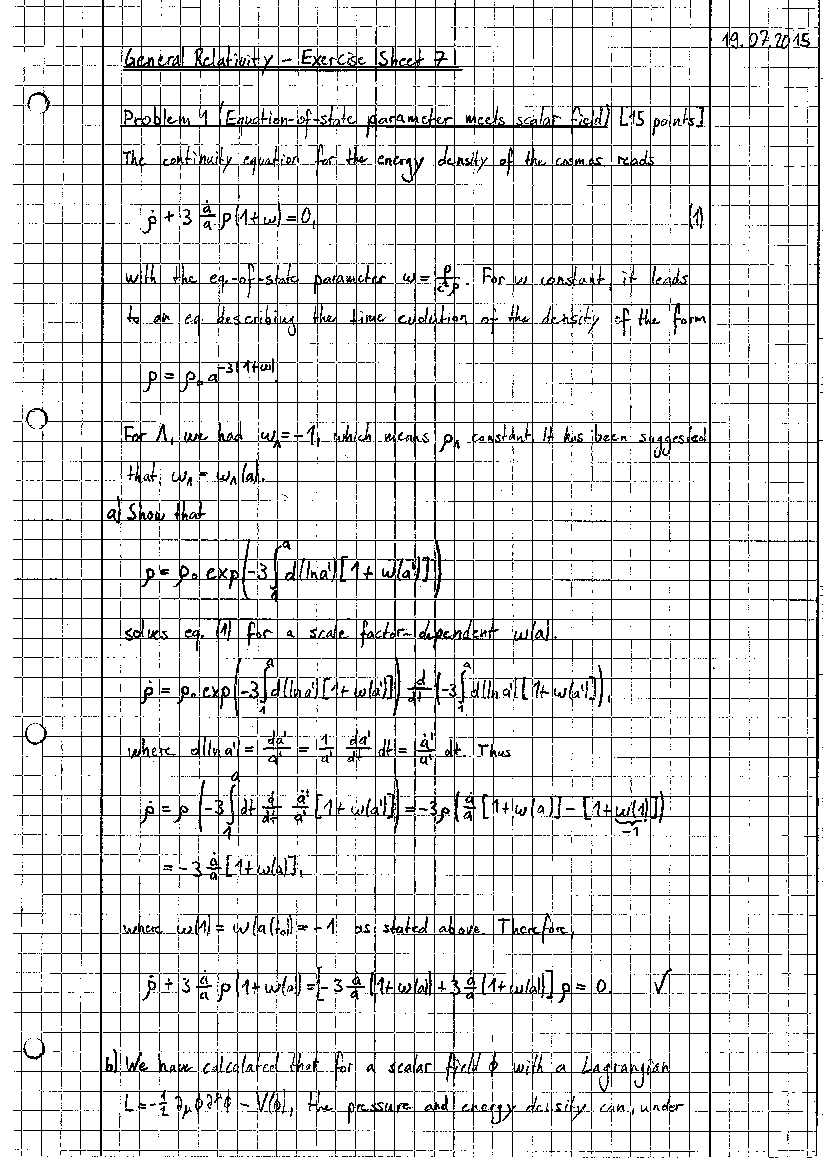 19.07.2015
General Relativity – Exercise Sheet 7
Problem 1 (Equation-of-state parameter meets scalar field) [15 points]
The continuity equation for the energy density of the cosmos reads
ρ̇ + 3 ȧ/a ρ(1+w) = 0, (1)
with the eq.-of-state parameter w = p/(c²ρ). For w constant, it leads
to an eq. describing the time evolution of the density of the form
ρ = ρ₀ a^(-3(1+w))
For Λ, we had w_Λ = -1, which means ρ_Λ constant. It has been suggested
that w_Λ = w_Λ(a).
a) Show that
ρ = ρ₀ exp(-3 ∫₁^a d(ln a') [1 + w(a')])
solves eq. (1) for a scale factor-dependent w(a).
ρ̇ = ρ₀ exp(-3 ∫₁^a d(ln a') [1 + w(a')]) d/dt (-3 ∫₁^a d(ln a') [1 + w(a')]),
where d(ln a') = da'/a' = 1/a' da'/dt dt = ȧ'/a' dt. Thus
ρ̇ = ρ (-3 ∫₁^a dt d/dt ȧ'/a' [1 + w(a')]) = -3ρ (ȧ/a [1 + w(a)] - [1 + w(1)]) -1
= -3 ȧ/a [1 + w(a)],
where w(1) = w(a(t₀)) = -1 as stated above. Therefore,
ρ̇ + 3 ȧ/a ρ(1 + w(a)) = [-3 ȧ/a (1 + w(a)) + 3 ȧ/a (1 + w(a))] ρ = 0. ✓
b) We have calculated that for a scalar field ϕ with a Lagrangian
L = -1/2 ∂_μϕ ∂^μϕ - V(ϕ), the pressure and energy density can, under